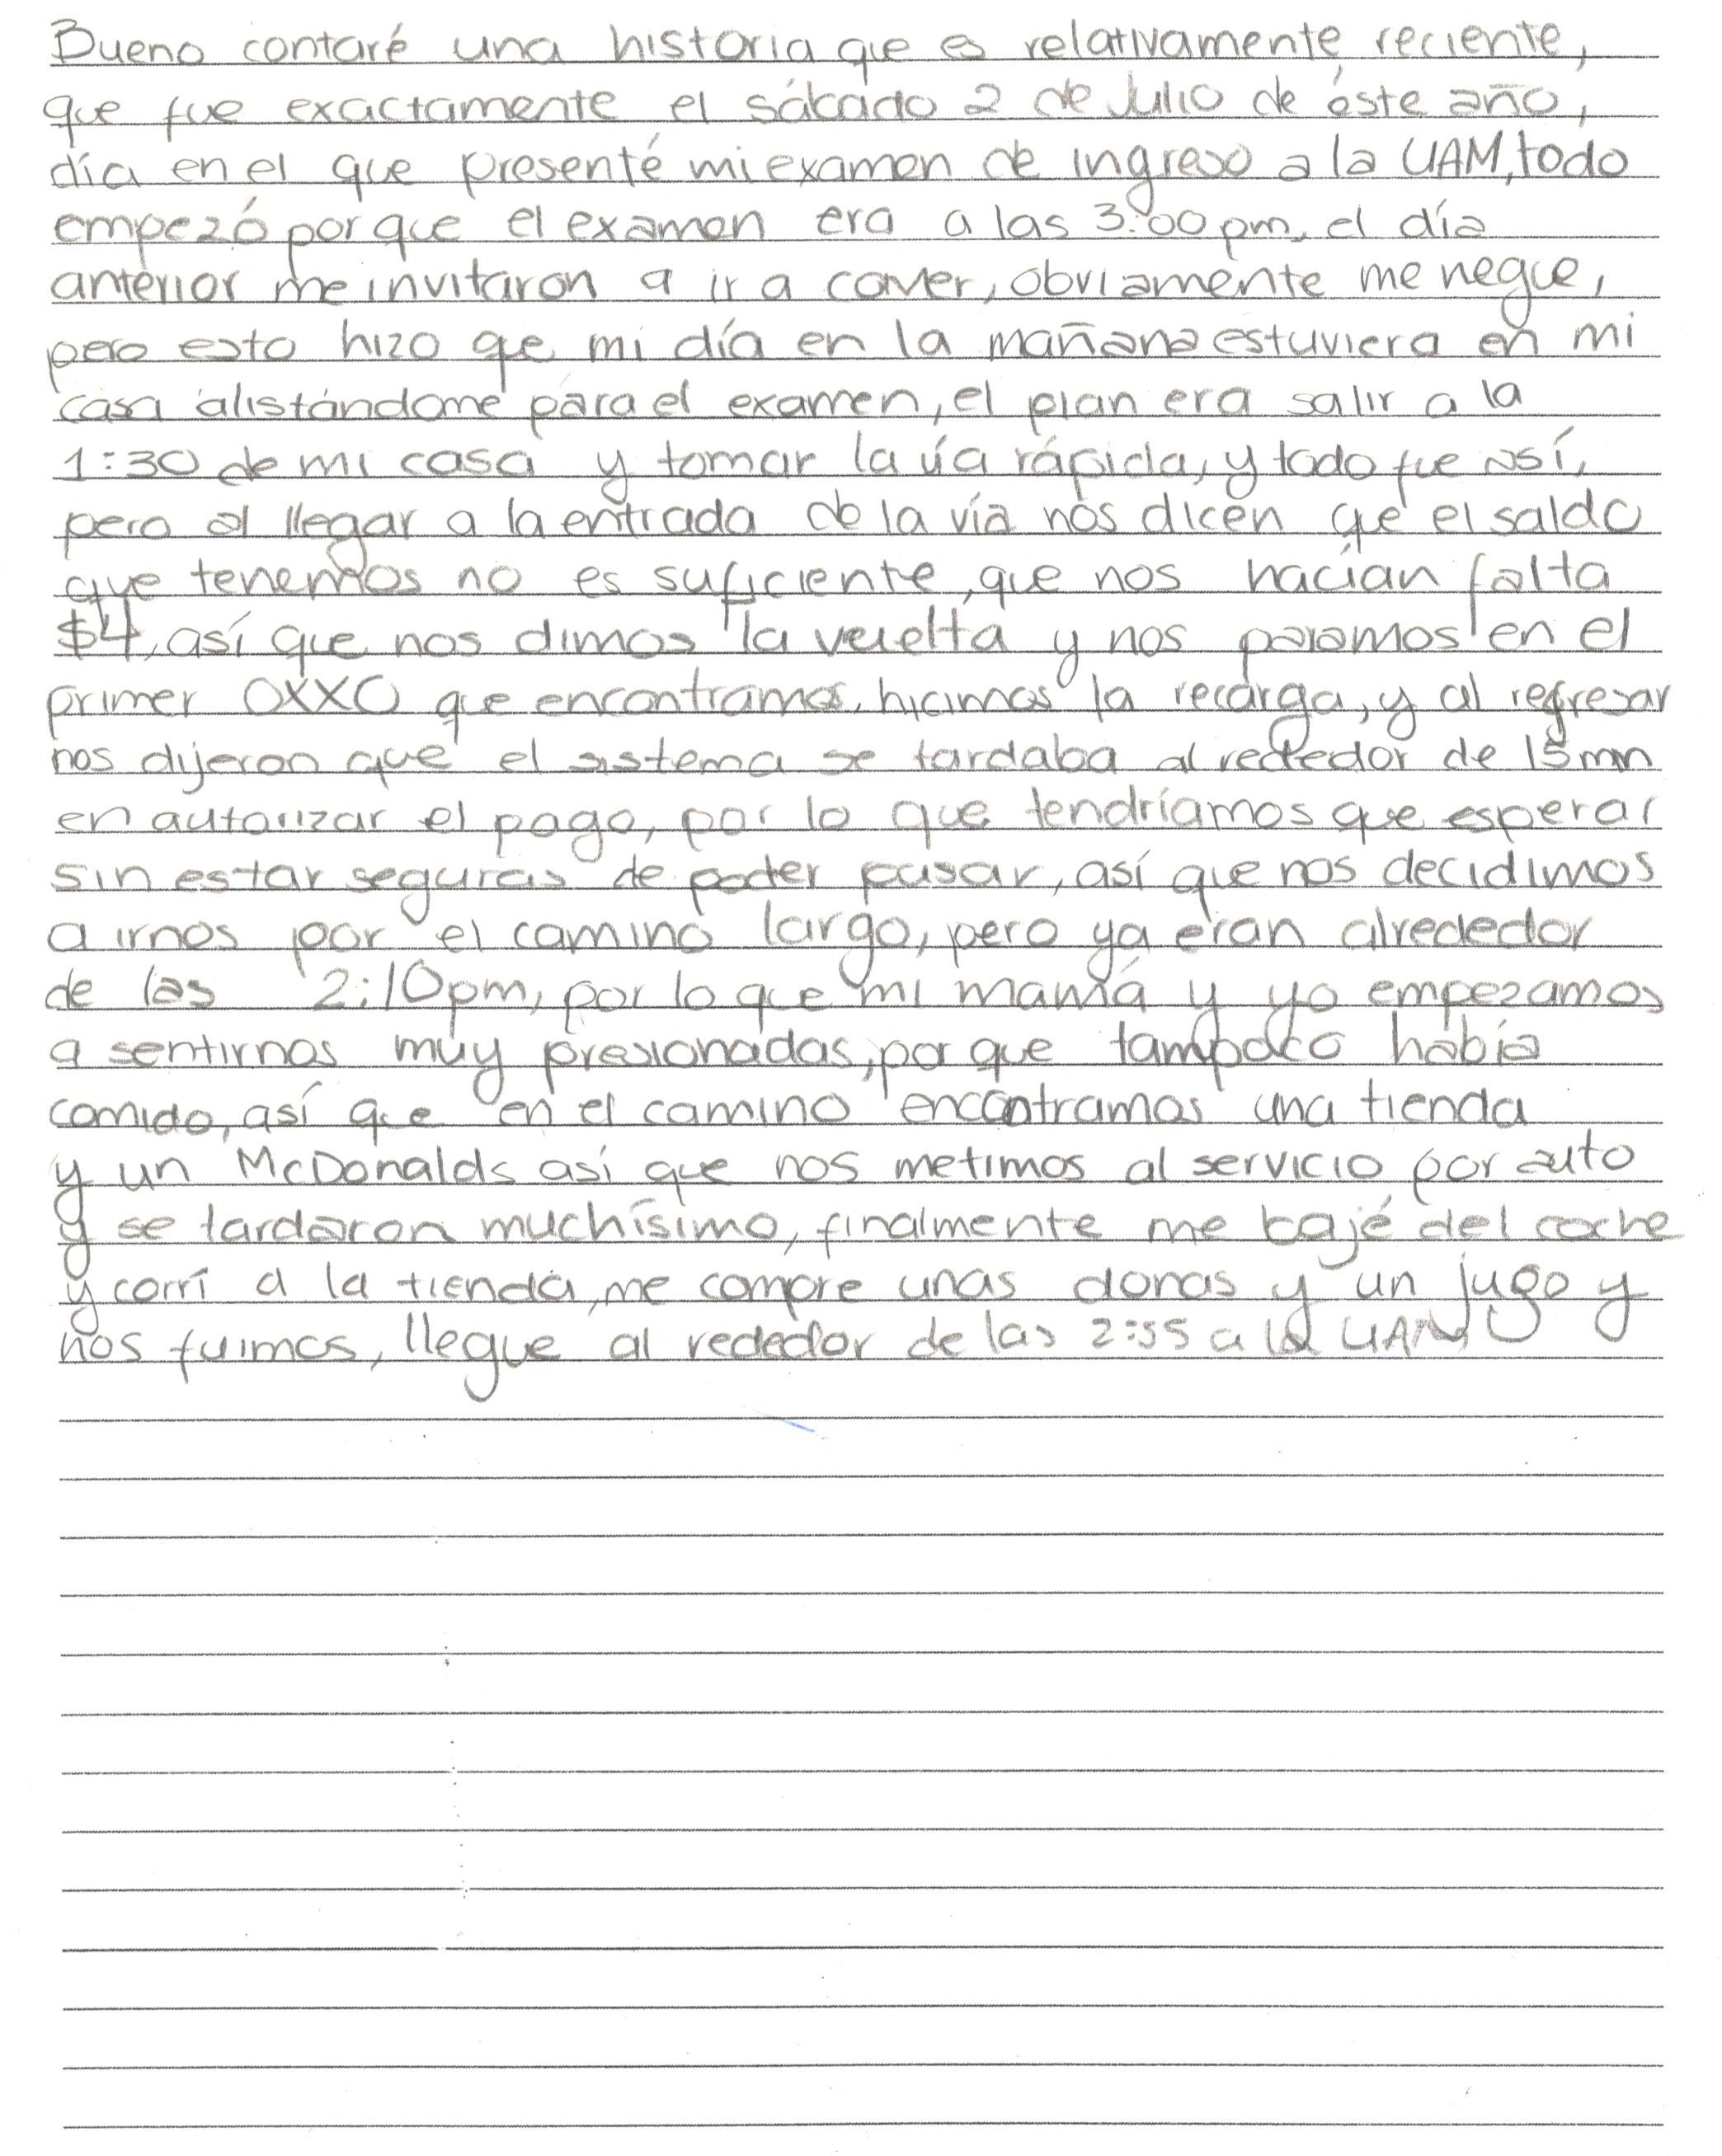 Bueno contaré una historia que es relativamente reciente,
que fue exactamente el sábado 2 de Julio de éste año,
día en el que presenté mi examen de ingreso a la UAM, todo
empezó por que el examen era a las 3:00 pm, el día
anterior me invitaron a ir a comer, obviamente me negue,
pero esto hizo que mi día en la mañana estuviera en mi
casa alistándome para el examen, el plan era salir a la
1:30 de mi casa y tomar la vía rápida, y todo fue así,
pero al llegar a la entrada de la vía nos dicen que el saldo
que tenemos no es suficiente, que nos hacían falta
$4, así que nos dimos la vuelta y nos paramos en el
primer OXXO que encontramos, hicimos la recarga, y al regresar
nos dijeron que el sistema se tardaba al rededor de 15 mn
en autorizar el pago, por lo que tendríamos que esperar
sin estar seguras de poder pasar, así que nos decidimos
a irnos por el camino largo, pero ya eran alrededor
de las 2:10 pm, por lo que mi mamá y yo empezamos
a sentirnos muy presionadas, por que tampoco había
comido, así que en el camino encontramos una tienda
y un McDonalds así que nos metimos al servicio por auto
y se tardaron muchísimo, finalmente me bajé del coche
y corrí a la tienda, me compre unas donas y un jugo y
nos fuimos, llegue al rededor de las 2:55 a la UAM